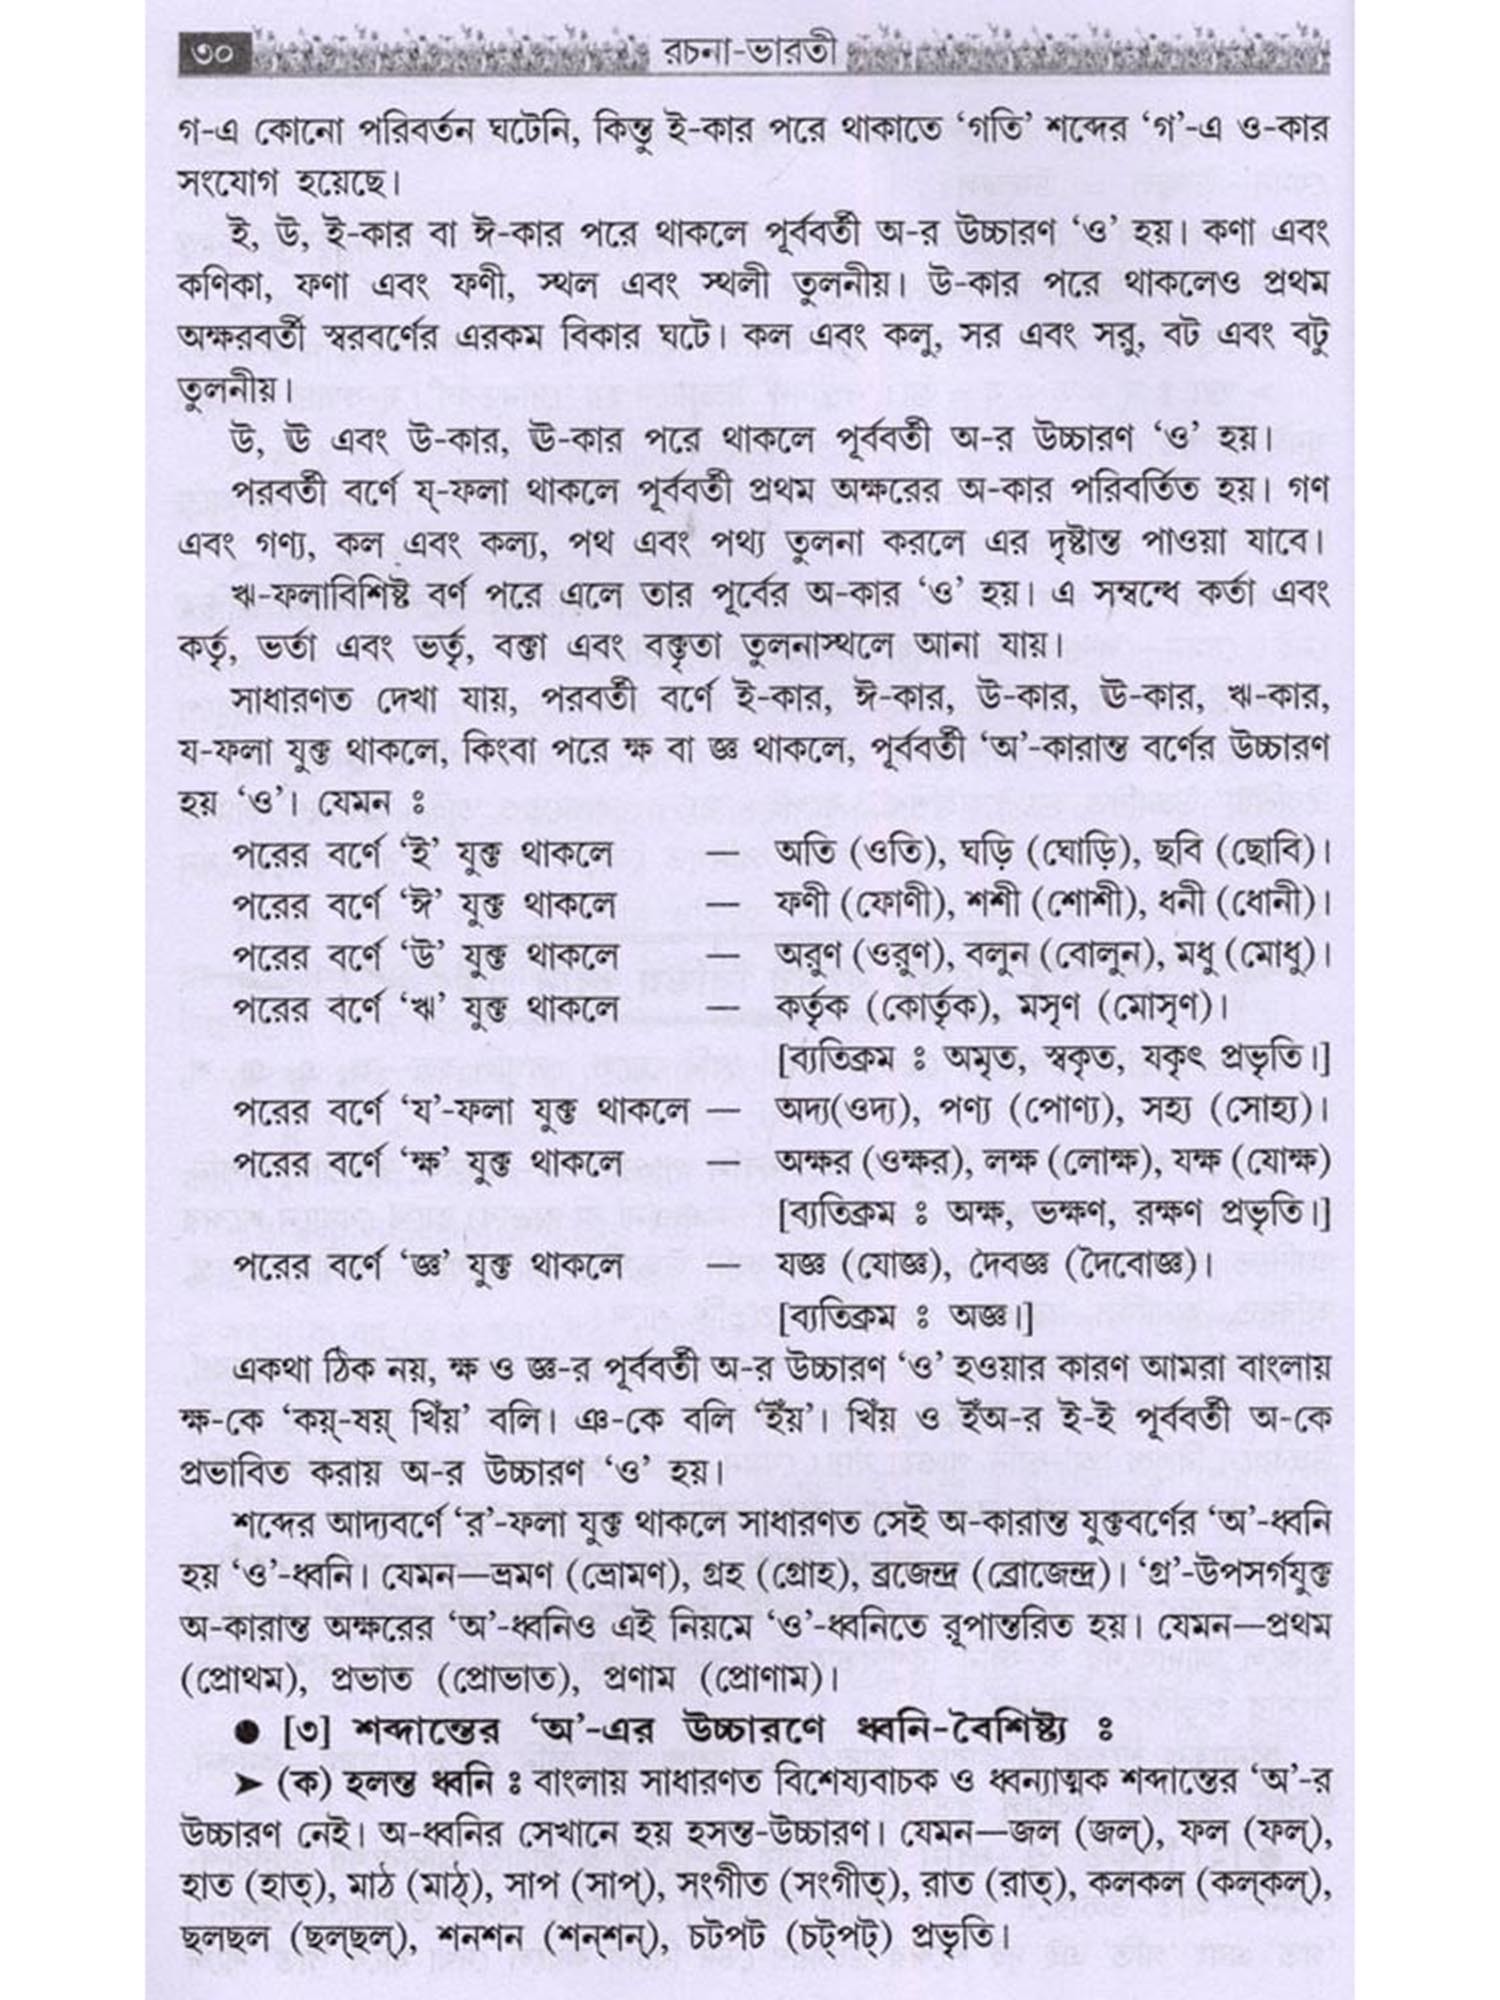 ৩০ রচনা-ভারতী
গ-এ কোনো পরিবর্তন ঘটেনি, কিন্তু ই-কার পরে থাকাতে ‘গতি’ শব্দের ‘গ’-এ ও-কার
সংযোগ হয়েছে।
ই, উ, ই-কার বা ঈ-কার পরে থাকলে পূর্ববর্তী অ-র উচ্চারণ ‘ও’ হয়। কণা এবং
কণিকা, ফণা এবং ফণী, স্থল এবং স্থলী তুলনীয়। উ-কার পরে থাকলেও প্রথম
অক্ষরবর্তী স্বরবর্ণের এরকম বিকার ঘটে। কল এবং কলু, সর এবং সরু, বট এবং বটু
তুলনীয়।
উ, ঊ এবং উ-কার, ঊ-কার পরে থাকলে পূর্ববর্তী অ-র উচ্চারণ ‘ও’ হয়।
পরবর্তী বর্ণে য্-ফলা থাকলে পূর্ববর্তী প্রথম অক্ষরের অ-কার পরিবর্তিত হয়। গণ
এবং গণ্য, কল এবং কল্য, পথ এবং পথ্য তুলনা করলে এর দৃষ্টান্ত পাওয়া যাবে।
ঋ-ফলাবিশিষ্ট বর্ণ পরে এলে তার পূর্বের অ-কার ‘ও’ হয়। এ সম্বন্ধে কর্তা এবং
কর্তৃ, ভর্তা এবং ভর্তৃ, বক্তা এবং বক্তৃতা তুলনাস্থলে আনা যায়।
সাধারণত দেখা যায়, পরবর্তী বর্ণে ই-কার, ঈ-কার, উ-কার, ঊ-কার, ঋ-কার,
য-ফলা যুক্ত থাকলে, কিংবা পরে ক্ষ বা জ্ঞ থাকলে, পূর্ববর্তী ‘অ’-কারান্ত বর্ণের উচ্চারণ
হয় ‘ও’। যেমন ঃ
পরের বর্ণে ‘ই’ যুক্ত থাকলে — অতি (ওতি), ঘড়ি (ঘোড়ি), ছবি (ছোবি)।
পরের বর্ণে ‘ঈ’ যুক্ত থাকলে — ফণী (ফোণী), শশী (শোশী), ধনী (ধোনী)।
পরের বর্ণে ‘উ’ যুক্ত থাকলে — অরুণ (ওরুণ), বলুন (বোলুন), মধু (মোধু)।
পরের বর্ণে ‘ঋ’ যুক্ত থাকলে — কর্তৃক (কোর্তৃক), মসৃণ (মোসৃণ)।
[ব্যতিক্রম ঃ অমৃত, স্বকৃত, যকৃৎ প্রভৃতি।]
পরের বর্ণে ‘য’-ফলা যুক্ত থাকলে — অদ্য(ওদ্য), পণ্য (পোণ্য), সহ্য (সোহ্য)।
পরের বর্ণে ‘ক্ষ’ যুক্ত থাকলে — অক্ষর (ওক্ষর), লক্ষ (লোক্ষ), যক্ষ (যোক্ষ)
[ব্যতিক্রম ঃ অক্ষ, ভক্ষণ, রক্ষণ প্রভৃতি।]
পরের বর্ণে ‘জ্ঞ’ যুক্ত থাকলে — যজ্ঞ (যোজ্ঞ), দৈবজ্ঞ (দৈবোজ্ঞ)।
[ব্যতিক্রম ঃ অজ্ঞ।]
একথা ঠিক নয়, ক্ষ ও জ্ঞ-র পূর্ববর্তী অ-র উচ্চারণ ‘ও’ হওয়ার কারণ আমরা বাংলায়
ক্ষ-কে ‘কয়্-ষয়্ খিঁয়’ বলি। ঞ-কে বলি ‘ইঁয়’। খিঁয় ও ইঁঅ-র ই-ই পূর্ববর্তী অ-কে
প্রভাবিত করায় অ-র উচ্চারণ ‘ও’ হয়।
শব্দের আদ্যবর্ণে ‘র’-ফলা যুক্ত থাকলে সাধারণত সেই অ-কারান্ত যুক্তবর্ণের ‘অ’-ধ্বনি
হয় ‘ও’-ধ্বনি। যেমন—ভ্রমণ (ভ্রোমণ), গ্রহ (গ্রোহ), ব্রজেন্দ্র (ব্রোজেন্দ্র)। ‘গ্র’-উপসর্গযুক্ত
অ-কারান্ত অক্ষরের ‘অ’-ধ্বনিও এই নিয়মে ‘ও’-ধ্বনিতে রূপান্তরিত হয়। যেমন—প্রথম
(প্রোথম), প্রভাত (প্রোভাত), প্রণাম (প্রোণাম)।
● [৩] শব্দান্তের ‘অ’-এর উচ্চারণে ধ্বনি-বৈশিষ্ট্য ঃ
➤ (ক) হলন্ত ধ্বনি ঃ বাংলায় সাধারণত বিশেষ্যবাচক ও ধ্বন্যাত্মক শব্দান্তের ‘অ’-র
উচ্চারণ নেই। অ-ধ্বনির সেখানে হয় হসন্ত-উচ্চারণ। যেমন—জল (জল্), ফল (ফল্),
হাত (হাত্), মাঠ (মাঠ্), সাপ (সাপ্), সংগীত (সংগীত্), রাত (রাত্), কলকল (কল্‌কল্),
ছলছল (ছল্‌ছল্), শনশন (শনশন্), চটপট (চট্‌পট্) প্রভৃতি।